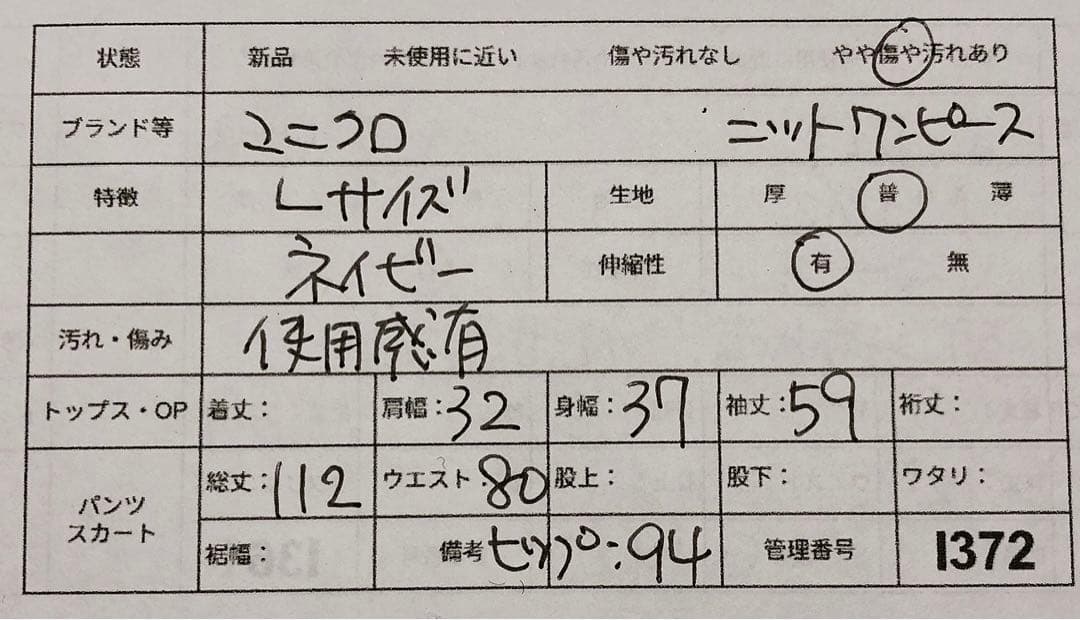 状態 新品 未使用に近い 傷や汚れなし やや傷や汚れあり
ブランド等 ユニクロ ニットワンピース
特徴 Lサイズ 生地 厚 普 薄
ネイビー 伸縮性 有 無
汚れ・傷み 使用感有
トップス・OP 着丈: 肩幅:32 身幅:37 袖丈:59 裄丈:
パンツ スカート 総丈:112 ウエスト:80 股上: 股下: ワタリ:
裾幅: 備考 ヒップ:94 管理番号 I372